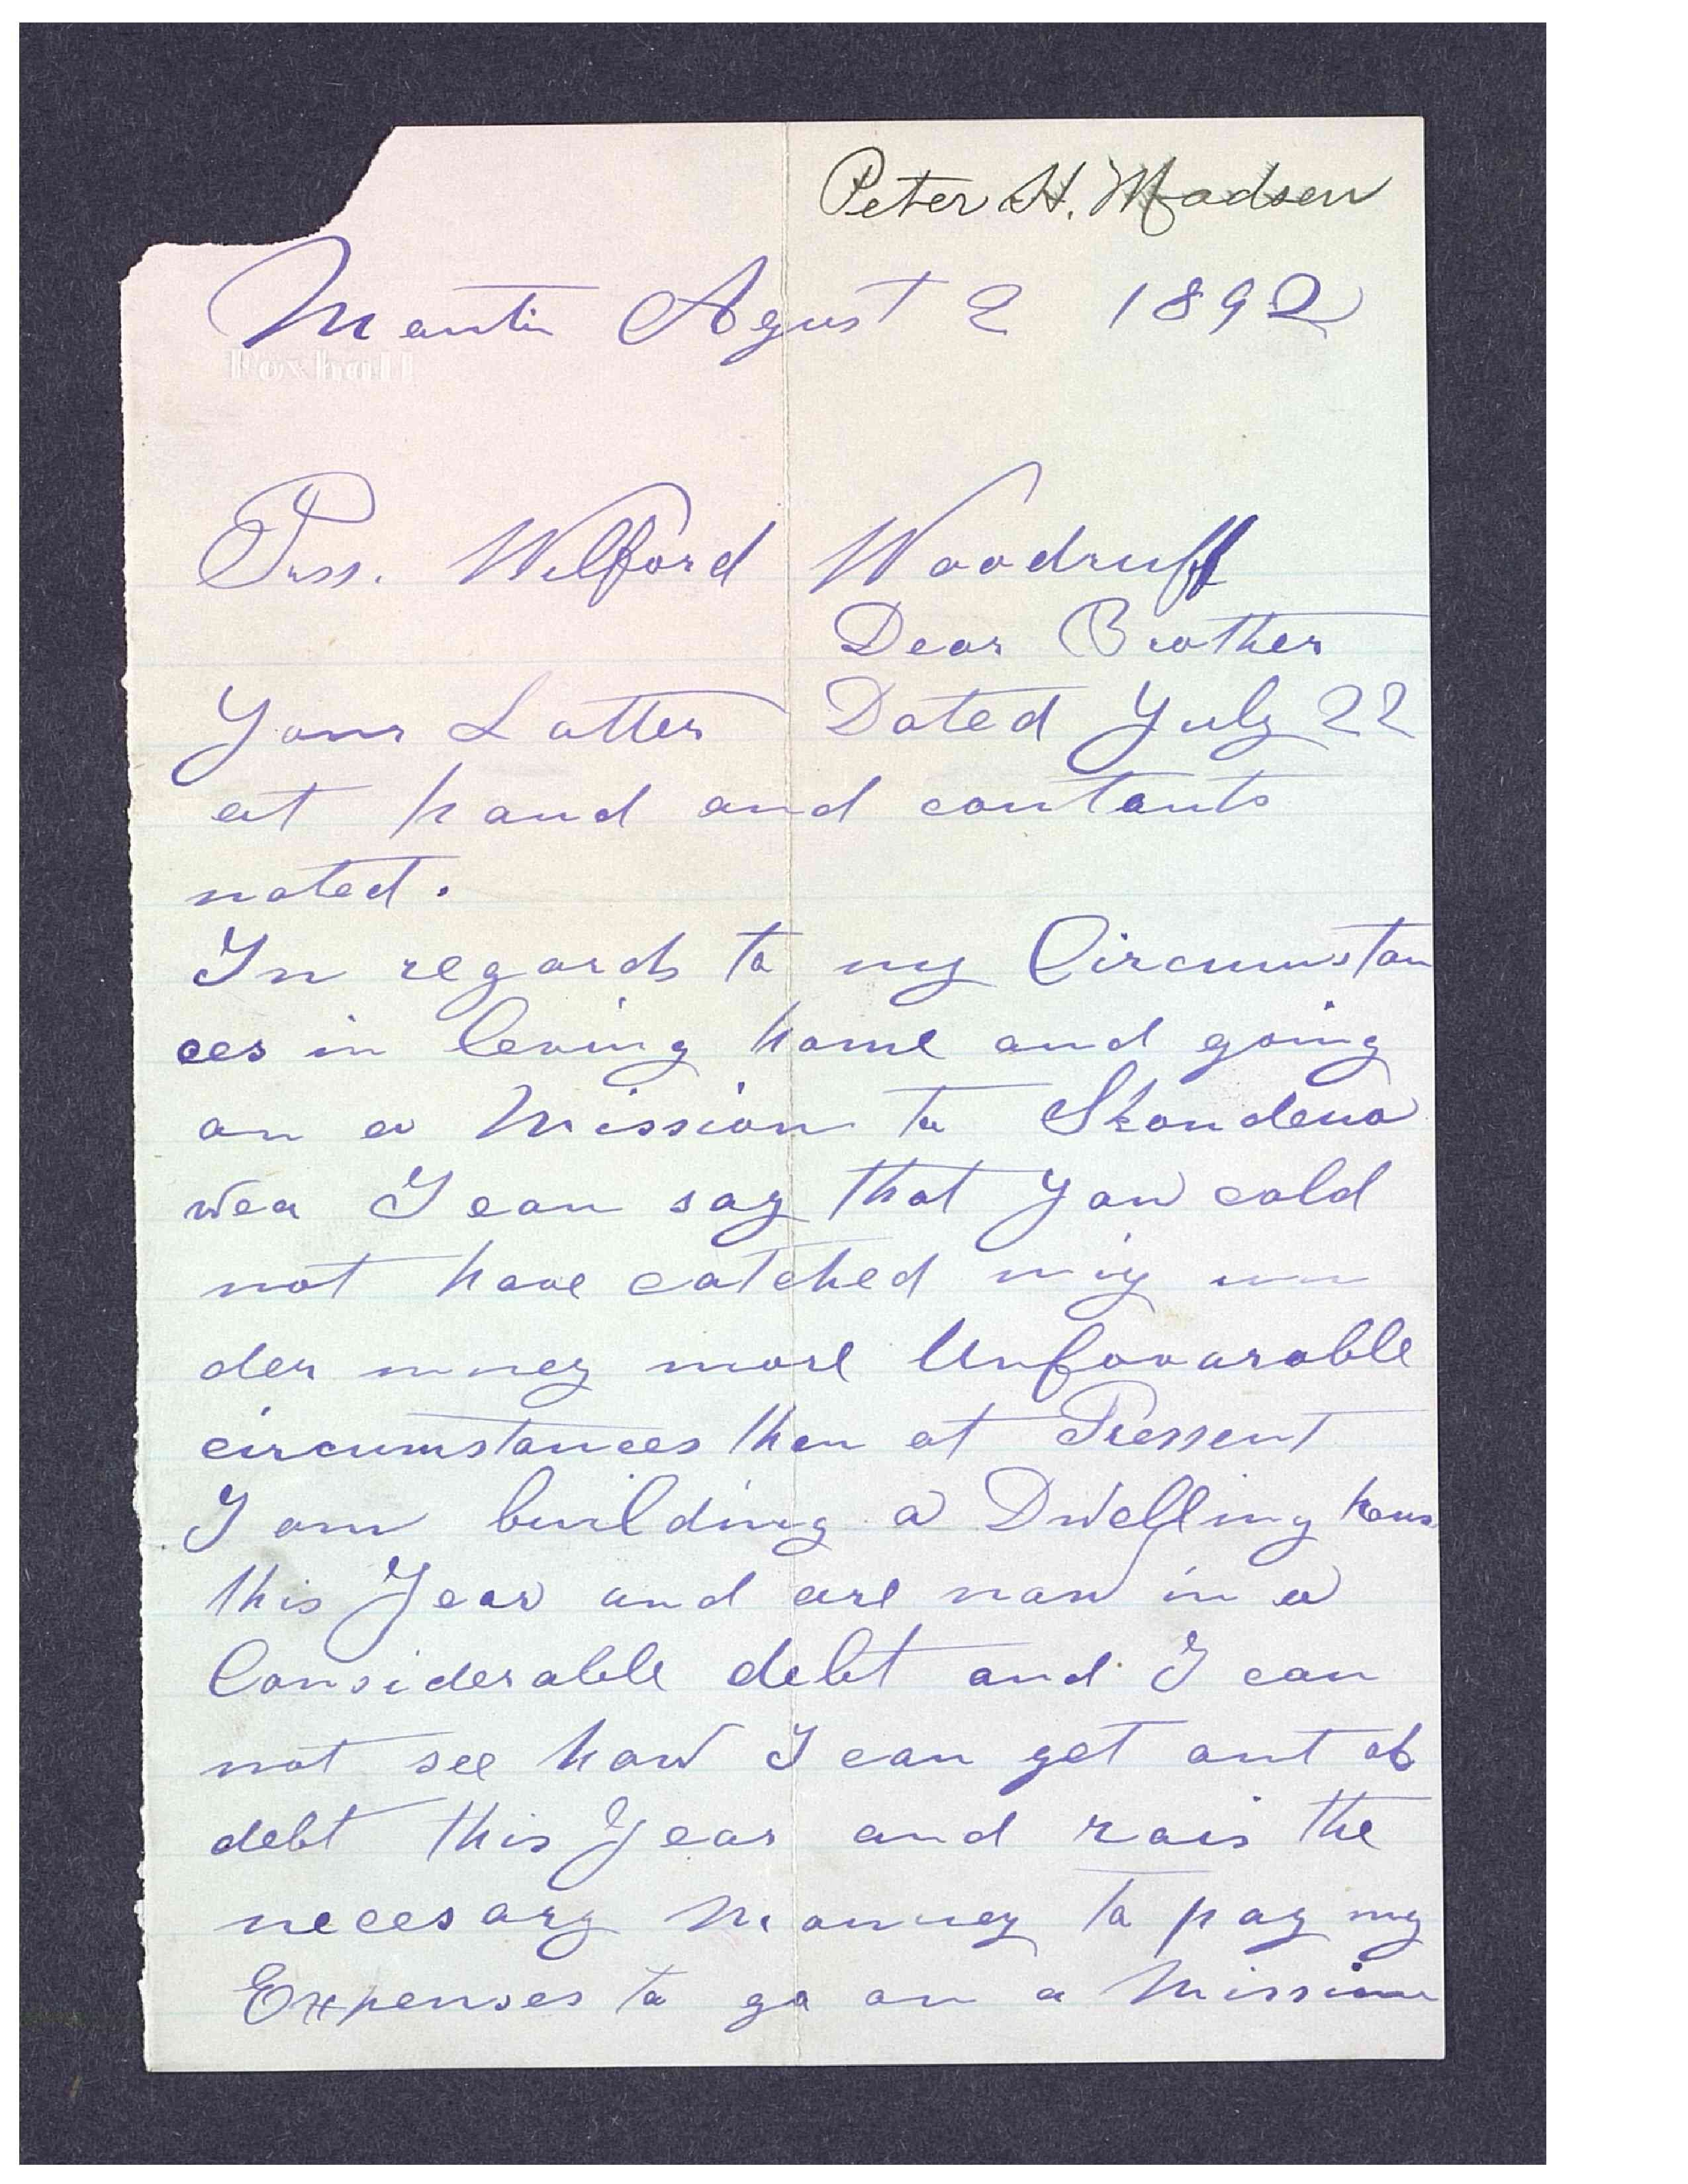 Peter H. Madsen
Manti Agust 2 1892
Foxhall
Press. Wilford Woodruff
Dear Brother
Your Latter Dated July 22
at hand and contants
noted.
In regards to my Circumstan
ces in leving home and going
on a Mission to Skandena
wea I can say that you cold
not have catched my un
der mney more Unfovarable
circumstances then at Pressent
I am building a Dwelling hous
this Year and are now in a
Considerable debt and I can
not see how I can get out of
debt this Year and rais the
necesary Monney to pay my
Expenses to go on a Mission